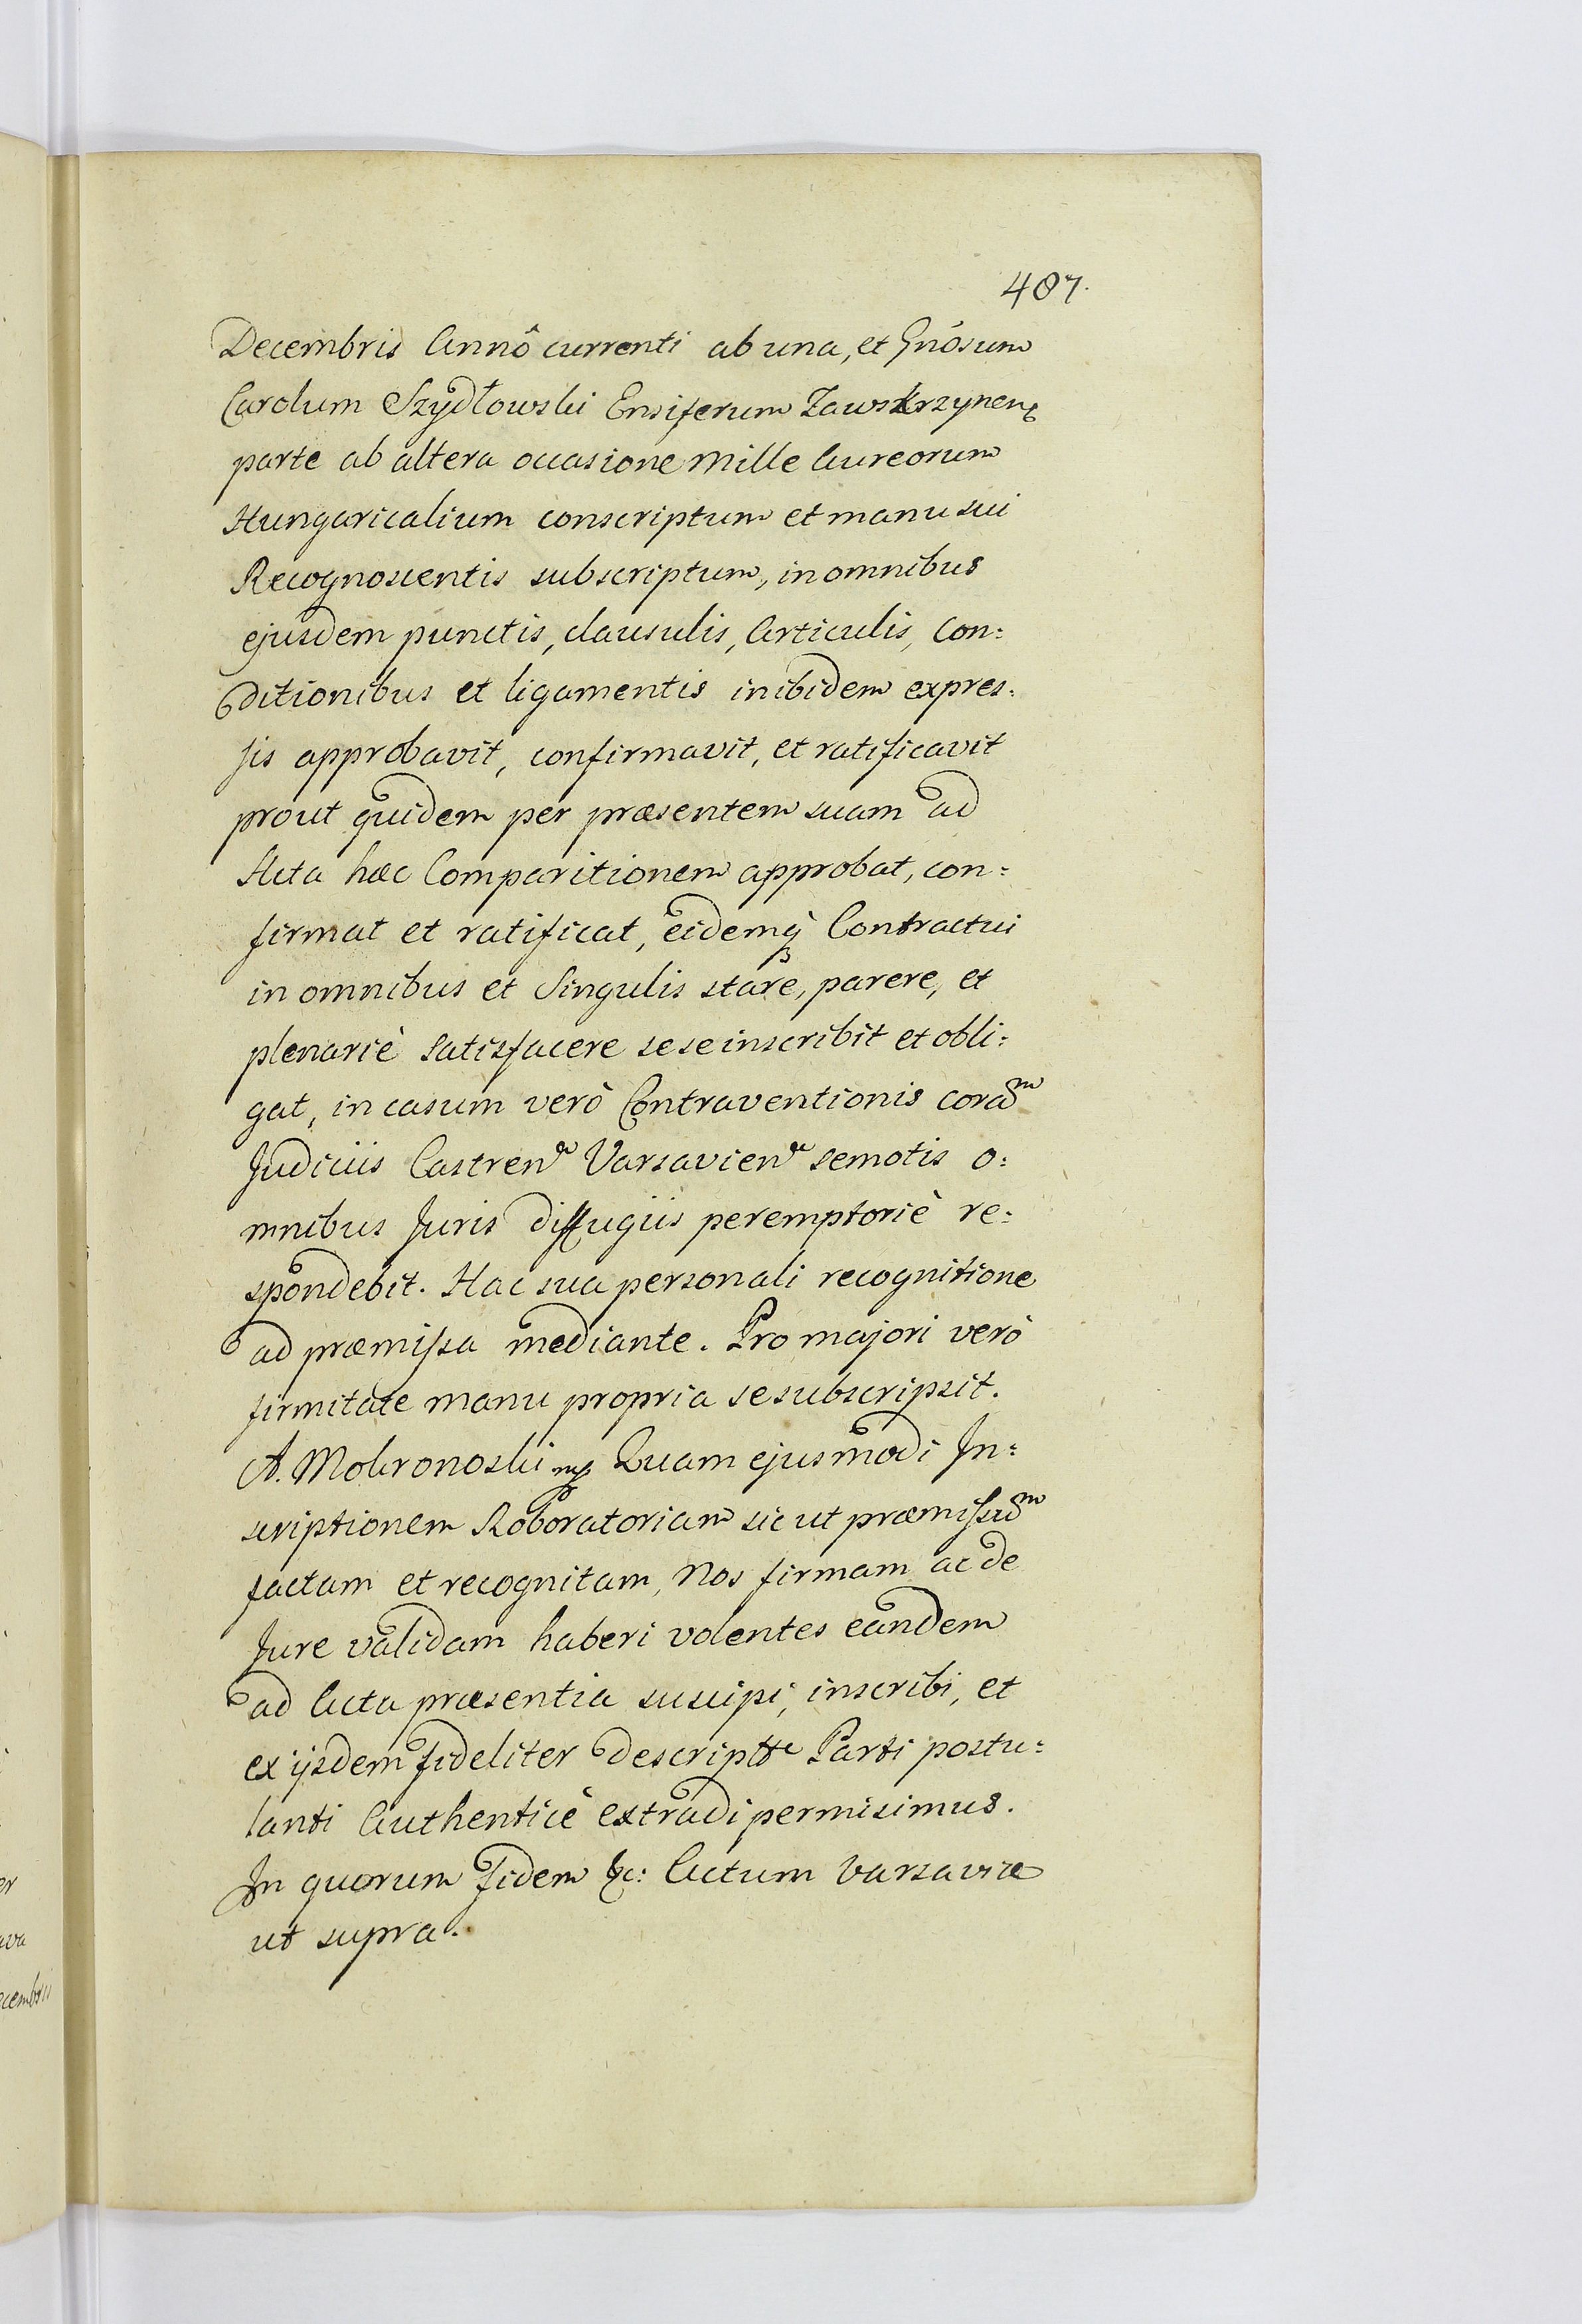 407.
Decembris Annô currenti ab una, et Gnôsum
Carolum Szydłowski Ensiferum Zawskrzynen
parte ab altera occasione Mille Aureorum
Hungaricalium conscriptum et manu sui
Recognoscentis subscriptum, in omnibus
ejusdem punctis, clausulis, Articulis, Con:
ditionibus et ligamentis inibidem expres:
sis approbavit, confirmavit, et ratificavit
prout quidem per præsentem suam ad
Acta hæc Comparitionem approbat, con:
firmat et ratificat, eidemq̀ Contractui
in omnibus et Singulis stare, parere, et
plenariè satisfacere sese inscribit et obli:
gat, in casum verò Contraventionis corãm
Judiciis Castren Varsavien semotis o:
mnibus Juris diffugiis peremptoriè re:
spondebit. Hac sua personali recognitione
ad præmissa mediante. Pro majori verò
firmitate manu propria se subscripsit.
A. Mokronoski mp Quam ejusmodi In:
scriptionem Roboratoriam sic ut præmissum
factam et recognitam, Nos firmam ac de
Jure validam haberi volentes eandem
ad Acta præsentia suscipi, inscribi, et
ex ijsdem fideliter descriptæ Parti postu:
lanti Authenticè extradi permisimus.
In quorum Fidem &c: Actum Varsaviæ
ut supra.